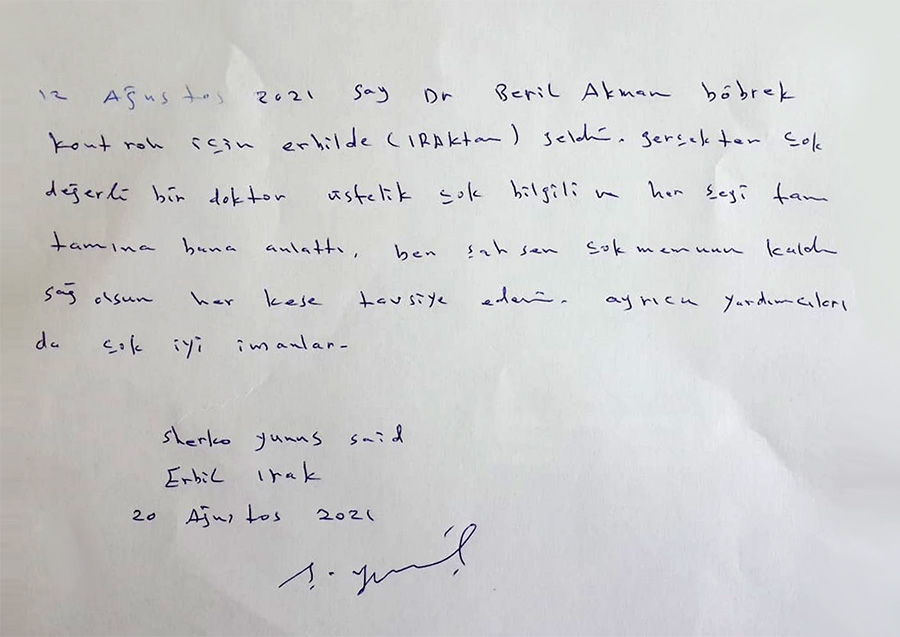 12 Ağustos 2021 Say Dr Beril Akman böbrek
kontrolu için erbilde (IRAktan) geldim. gerçekten çok
değerli bir doktor üstelik çok bilgili ve her şeyi tam
tamına bana anlattı, ben şahsen çok memnun kaldım
sağ olsun her kese tavsiye ederim. ayrıca yardımcıları
da çok iyi insanlar-
Sherko yunus said
Erbil Irak
20 Ağustos 2021